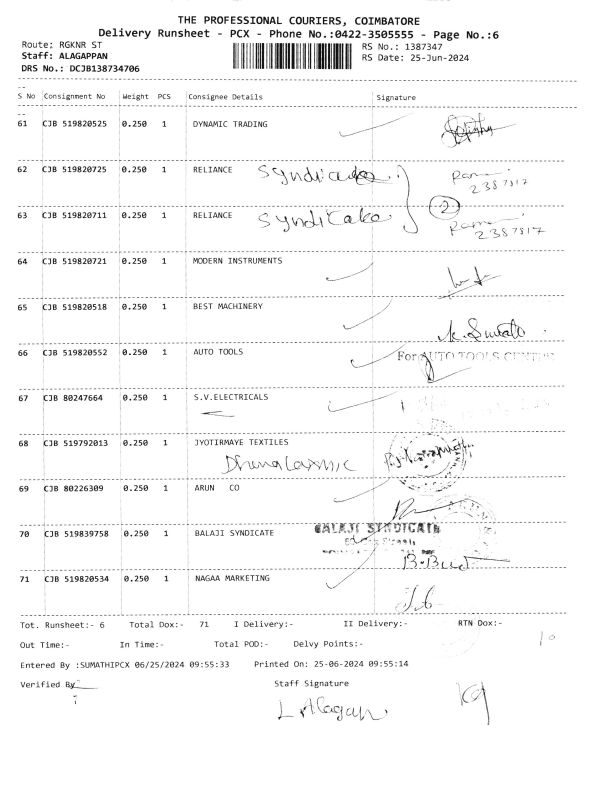 THE PROFESSIONAL COURIERS, COIMBATORE
Delivery Runsheet - PCX - Phone No.:0422-3505555 - Page No.:6
Route: RGKNR ST
RS No.: 1387347
Staff: ALAGAPPAN
RS Date: 25-Jun-2024
DRS No.: DCJB138734706
S No Consignment No Weight PCS Consignee Details Signature
61 CJB 519820525 0.250 1 DYNAMIC TRADING
62 CJB 519820725 0.250 1 RELIANCE Syndicate
2387817
63 CJB 519820711 0.250 1 RELIANCE Syndicate 2
2387817
64 CJB 519820721 0.250 1 MODERN INSTRUMENTS
65 CJB 519820518 0.250 1 BEST MACHINERY
66 CJB 519820552 0.250 1 AUTO TOOLS For AUTO TOOLS CENTRE
67 CJB 80247664 0.250 1 S.V.ELECTRICALS
68 CJB 519792013 0.250 1 JYOTIRMAYE TEXTILES
69 CJB 80226309 0.250 1 ARUN CO
70 CJB 519839758 0.250 1 BALAJI SYNDICATE BALAJI SYNDICATE
71 CJB 519820534 0.250 1 NAGAA MARKETING
Tot. Runsheet:- 6 Total Dox:- 71 I Delivery:- II Delivery:- RTN Dox:-
Out Time:- In Time:- Total POD:- Delvy Points:-
Entered By :SUMATHIPCX 06/25/2024 09:55:33 Printed On: 25-06-2024 09:55:14
Verified By Staff Signature
L Alagan